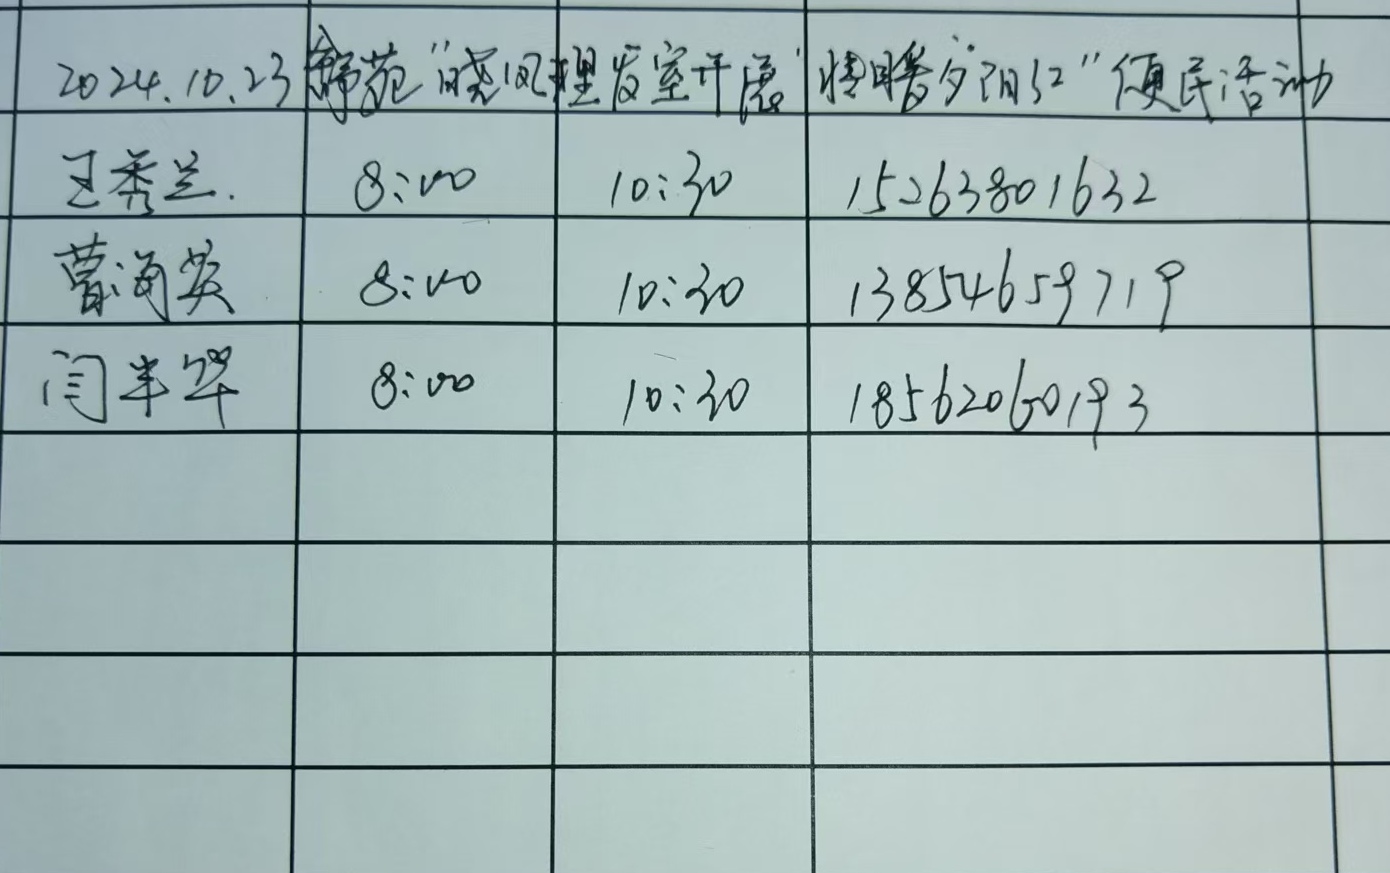 2024.10.23 舒苑"晓风理发室开展"情暖夕阳红"便民活动
王秀兰. 8:00 10:30 15263801632
曹海英 8:00 10:30 13854659719
闫半华 8:00 10:30 18562060193